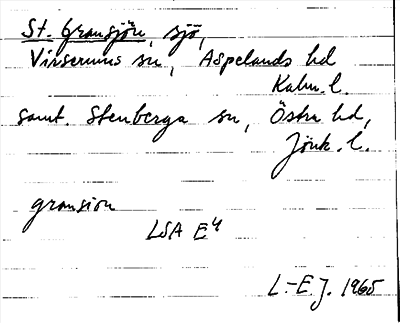 St. Gransjön, sjö,
Virserums sn, Aspelands hd
Kalm. l.
samt. Stenberga sn, Östra hd,
Jönk. l.
gransion
LSA E4
L.-E. J. 1965